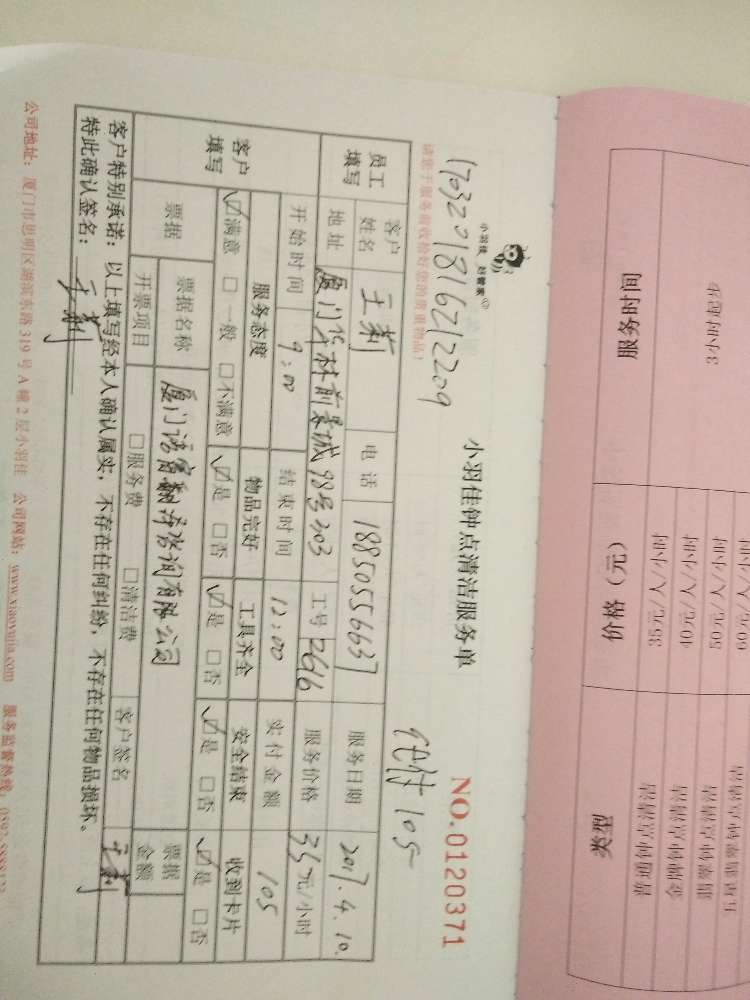 小羽佳 好管家
小羽佳钟点清洁服务单
NO.0120371
1703201816212209
代付105
请您于服务前收拾好您的贵重物品!
员工填写
客户姓名 王莉 电话 18850556637 服务日期 2017.4.10.
地址 厦门华林前景城98号303 工号 2616 服务价格 35元/小时
客户填写
开始时间 9:00 结束时间 12:00 实付金额 105
服务态度 物品完好 工具齐全 安全结束 收到卡片
☑满意 □一般 □不满意 ☑是 □否 ☑是 □否 ☑是 □否 ☑是 □否
票据 票据名称 厦门语富翻译咨询有限公司 票据金额
开票项目 □服务费 □清洁费 客户签名 王莉
客户特别承诺:以上填写经本人确认属实,不存在任何纠纷,不存在任何物品损坏。
特此确认签名:王莉
公司地址:厦门市思明区湖滨东路319号A幢2层小羽佳 公司网站:www.xiaoyujia.com 服务监督热线:0592
服务时间 价格(元) 类型
3小时起步
35元/人/小时 普通钟点清洁
40元/人/小时 金牌钟点清洁
50元/人/小时 翡翠钟点清洁
60元/人/小时 五星翡翠钟点清洁